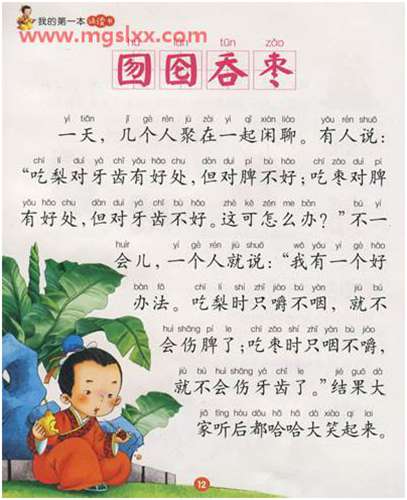 我的第一本 诵读书
www.mgslxx.com
hú lún tūn zǎo
囫囵吞枣
yì tiān jǐ gè rén jù zài yì qǐ xián liáo yǒu rén shuō
一天，几个人聚在一起闲聊。有人说：
chī lí duì yá chǐ yǒu hǎo chù dàn duì pí bù hǎo chī zǎo duì pí
“吃梨对牙齿有好处，但对脾不好；吃枣对脾
yǒu hǎo chù dàn duì yá chǐ bù hǎo zhè kě zěn me bàn bù yí
有好处，但对牙齿不好。这可怎么办？”不一
huìr yí gè rén jiù shuō wǒ yǒu yí gè hǎo
会儿，一个人就说：“我有一个好
bàn fǎ chī lí shí zhǐ jiáo bú yàn jiù bú
办法。吃梨时只嚼不咽，就不
huì shāng pí le chī zǎo shí zhǐ yàn bù jiáo
会伤脾了；吃枣时只咽不嚼，
jiù bú huì shāng yá chǐ le jié guǒ dà
就不会伤牙齿了。”结果大
jiā tīng hòu dōu hā hā dà xiào qǐ lai
家听后都哈哈大笑起来。
12